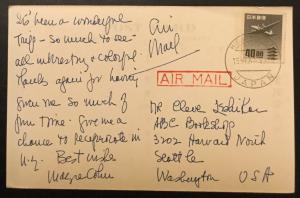 It's been a wonderful
trip - so much to see -
all interesting & colorful.
Thanks again for having
given me so much of
your time. Give me a
chance to reciprocate in
N.Y. Best wishes
Air
Mail
AIR MAIL
日本郵便
40.00
JAPAN
Mr Cleve
ABC Bookshop
3202 Harvard North
Seattle
Washington U.S.A